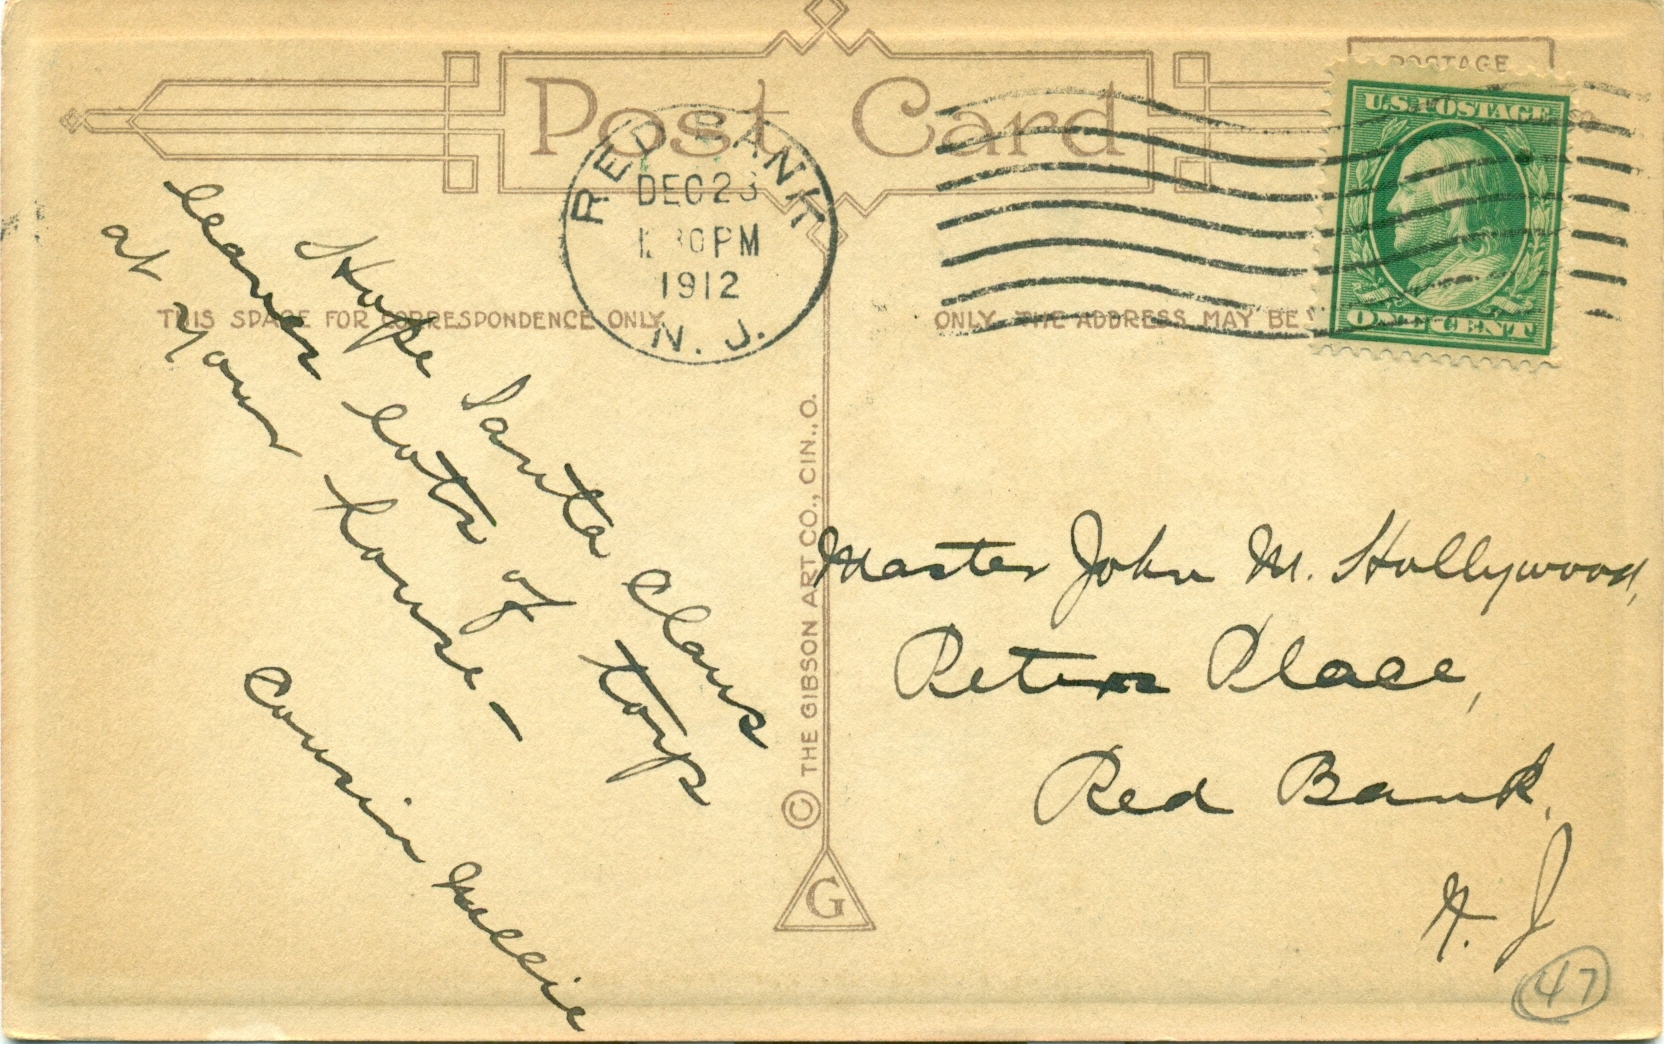 Post Card
POSTAGE
U.S. POSTAGE
ONE CENT
RED BANK
DEC 23
30 PM
1912
N. J.
THIS SPACE FOR CORRESPONDENCE ONLY.
ONLY THE ADDRESS MAY BE
Hope Santa Claus
leaves lots of toys
at your house -
Cousin Mellie
© THE GIBSON ART CO., CIN., O.
G
Master John M. Hollywood,
Peters Place,
Red Bank,
N. J
47